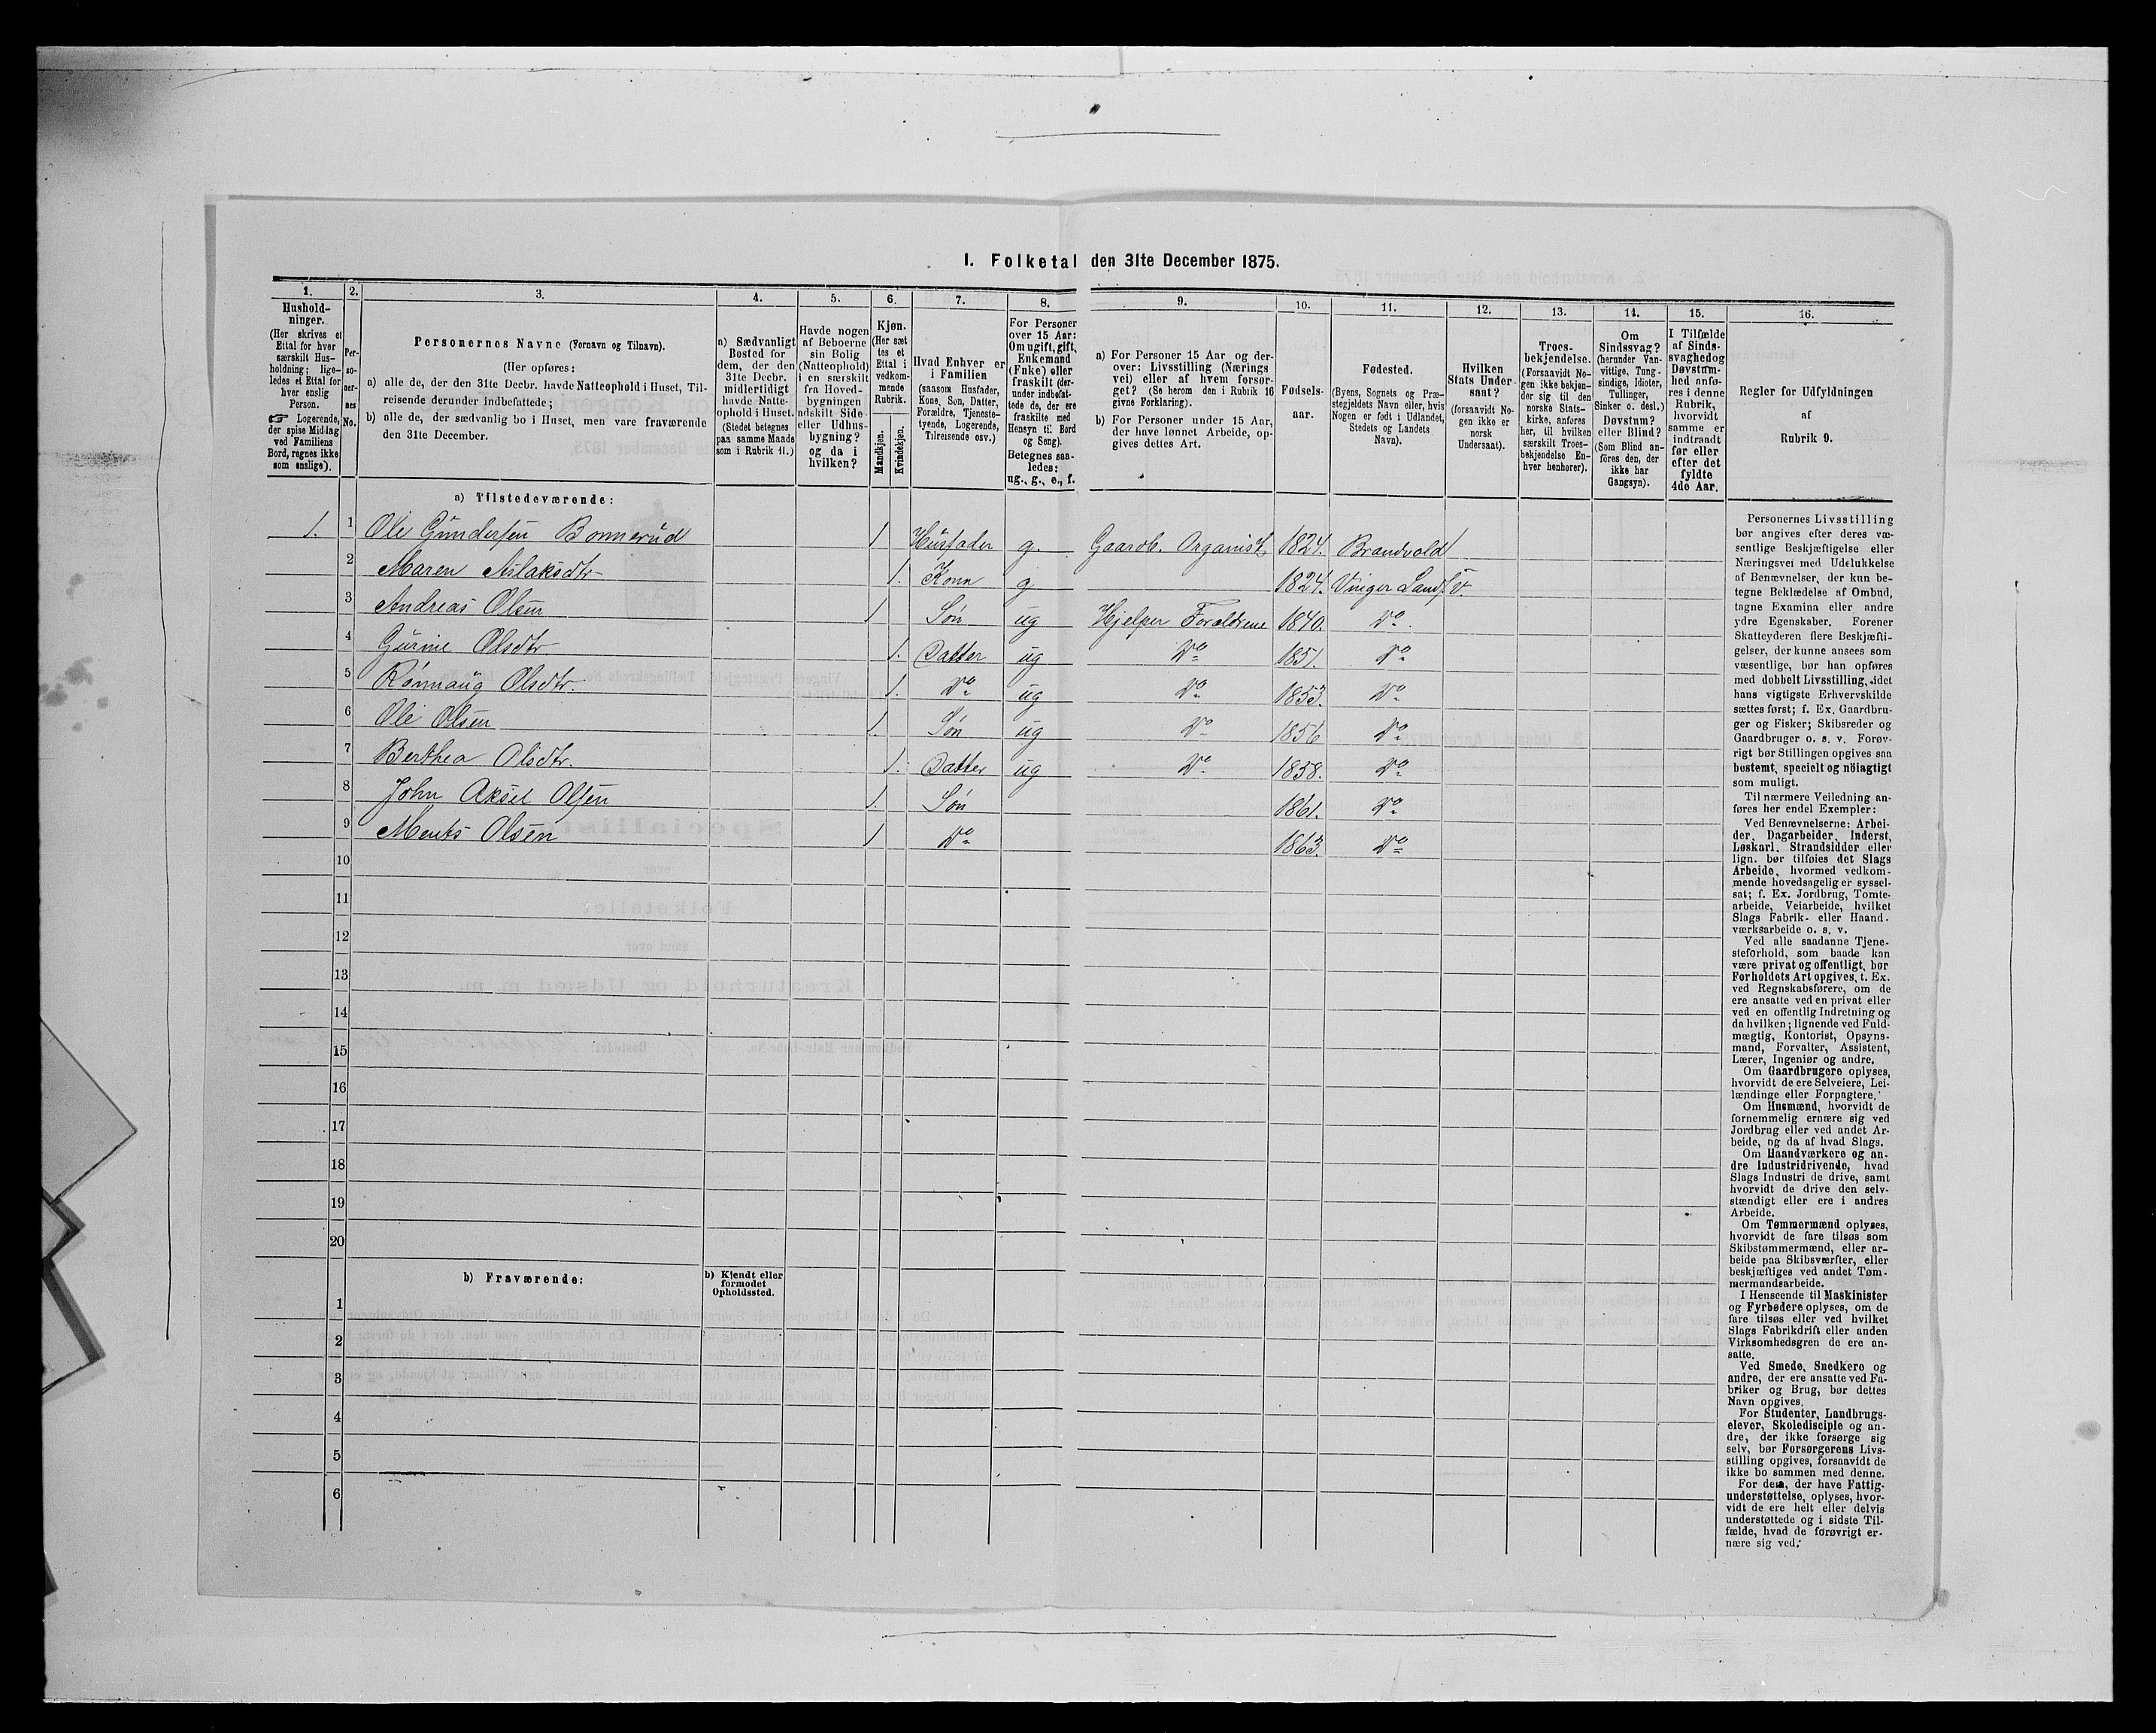 I. Folketal den 31te December 1875.
1.
2.
3.
4.
5.
6.
7.
8.
9.
10.
11.
12.
13.
14.
15.
16.
Hushold-
ninger.
(Her skrives et
Ettal for hver
særskilt Hus-
holdning; lige-
ledes et Ettal for
hver enslig
Person.
☞ Logerende,
der spise Middag
ved Familiens
Bord, regnes ikke
som enslige).
Per-
so-
ner-
nes
No.
Personernes Navne (Fornavn og Tilnavn).
(Her opføres:
a) alle de, der den 31te Decbr. havde Natteophold i Huset, Til-
reisende derunder indbefattede;
b) alle de, der sædvanlig bo i Huset, men vare fraværende
den 31te December.
a) Sædvanligt
Bosted for
dem, der den
31te Decbr.
midlertidigt
havde Natte-
ophold i Huset.
(Stedet betegnes
paa samme Maade
som i Rubrik 11.)
Havde nogen
af Beboerne
sin Bolig
(Natteophold)
i en særskilt
fra Hoved-
bygningen
adskilt Side-
eller Udhus-
bygning?
og da i
hvilken?
Kjøn.
(Her sæt
tes et
Ettal i
vedkom-
mende
Rubrik.
Mandkjøn.
Kvindekjøn.
Hvad Enhver er
i Familien
(saasom Husfader,
Kone, Søn, Datter,
Forældre, Tjeneste-
tyende, Logerende,
Tilreisende osv.)
For Personer
over 15 Aar:
Om ugift, gift,
Enkemand
(Enke) eller
fraskilt (der-
under indbefat-
tede de, der ere
fraskilte med
Hensyn til Bord
og Seng).
Betegnes saa-
ledes:
ug., g., e., f.
a) For Personer 15 Aar og der-
over: Livsstilling (Nærings
vei) eller af hvem forsør-
get? (Se herom den i Rubrik 16
givne Forklaring).
b) For Personer under 15 Aar,
der have lønnet Arbeide, op-
gives dettes Art.
Fødsels-
aar.
Fødested.
(Byens, Sognets og Præ-
stegjeldets Navn eller, hvis
Nogen er født i Udlandet,
Stedets og Landets
Navn).
Hvilken
Stats Under-
saat?
(forsaavidt No-
gen ikke er
norsk
Undersaat).
Troes-
bekjendelse.
(Forsaavidt No-
gen ikke bekjen-
der sig til den
norske Stats-
kirke, anføres
her, til hvilken
særskilt Troes-
bekjendelse En-
hver henhører).
Om
Sindssvag?
(herunder Van-
vittige, Tung-
sindige, Idioter,
Tullinger,
Sinker o. desl.)
Døvstum?
eller Blind?
(Som Blind an-
føres den, der
ikke har
Gangsyn).
I Tilfælde
af Sinds-
svaghed og
Døvstum-
hed anfø-
res i denne
Rubrik,
hvorvidt
samme er
indtraadt
før eller
efter det
fyldte
4de Aar.
Regler for Udfyldningen
af
Rubrik 9.
a) Tilstedeværende:
1. 1 Ole Gundersen Bonnerud 1 Husfader g. Gaardb. Organist 1824. Brandvold
2 Maren Aslaksdtr 1. Kone g 1824. Vinger Lands.
3 Andreas Olsen 1 Søn ug Hjelper Forældrene 1840. Do.
4 Gurine Olsdtr 1. Datter ug Do 1851. Do
5 Rønnaug Olsdtr. 1. Do ug Do 1853. Do
6 Ole Olsen 1. Søn ug Do 1856 Do
7 Berthea Olsdtr. 1. Datter ug Do 1858. Do
8 John Aksel Olsen 1. Søn 1861. Do
9 Ments Olsen 1 Do 1863. Do
10
11
12
13
14
15
16
17
18
19
20
b) Fraværende:
b) Kjendt eller
formodet
Opholdssted.
1
2
3
4
5
6
Personernes Livsstilling
bør angives efter deres væ-
sentlige Beskjæftigelse eller
Næringsvei med Udelukkelse
af Benævnelser, der kun be-
tegne Beklædelse af Ombud,
tagne Examina eller andre
ydre Egenskaber. Forener
Skatteyderen flere Beskjæfti-
gelser, der kunne ansees som
væsentlige, bør han opføres
med dobbelt Livsstilling, idet
hans vigtigste Erhvervskilde
sættes først; f. Ex. Gaardbru-
ger og Fisker; Skibsreder og
Gaardbruger o. s. v. Forøv-
rigt bør Stillingen opgives saa
bestemt, specielt og nöiagtigt
som muligt.
Til nærmere Veiledning an-
føres her endel Exempler:
Ved Benævnelserne: Arbei-
der, Dagarbeider, Inderst,
Løskarl, Strandsidder eller
lign. bør tilføies det Slags
Arbeide, hvormed vedkom-
mende hovedsagelig er syssel-
sat; f. Ex. Jordbrug, Tomte-
arbeide, Veiarbeide, hvilket
Slags Fabrik- eller Haand-
værksarbeide o. s. v.
Ved alle saadanne Tjene-
steforhold, som baade kan
være privat og offentligt, bør
Forholdets Art opgives, t. Ex.
ved Regnskabsførere, om de
ere ansatte ved en privat eller
ved en offentlig Indretning og
da hvilken; lignende ved Fuld-
mægtig, Kontorist, Opsyns-
mand, Forvalter, Assistent,
Lærer, Ingeniør og andre.
Om Gaardbrugere oplyses,
hvorvidt de ere Selveiere, Lei-
lændinge eller Forpagtere.
Om Husmænd, hvorvidt de
fornemmelig ernære sig ved
Jordbrug eller ved andet Ar-
beide, og da af hvad Slags.
Om Haandværkere og an-
dre Industridrivende, hvad
Slags Industri de drive, samt
hvorvidt de drive den selv-
stændigt eller ere i andres
Arbeide.
Om Tømmermænd oplyses,
hvorvidt de fare tilsøs som
Skibstømmermænd, eller ar-
beide paa Skibsværfter, eller
beskjæftiges ved andet Tøm-
mermandsarbeide.
I Henseende til Maskinister
og Fyrbødere oplyses, om de
fare tilsøs eller ved hvilket
Slags Fabrikdrift eller anden
Virksomhedsgren de ere an-
satte.
Ved Smede, Snedkere og
andre, der ere ansatte ved Fa-
briker og Brug, bør dettes
Navn opgives.
For Studenter, Landbrugs-
elever, Skoledisciple og an-
dre, der ikke forsørge sig
selv, bør Forsørgerens Livs-
stilling opgives, forsaavidt de
ikke bo sammen med denne.
For dem, der have Fattig-
understøttelse, oplyses, hvor-
vidt de ere helt eller delvis
understøttede og i sidste Til-
fælde, hvad de forøvrigt er-
nære sig ved.